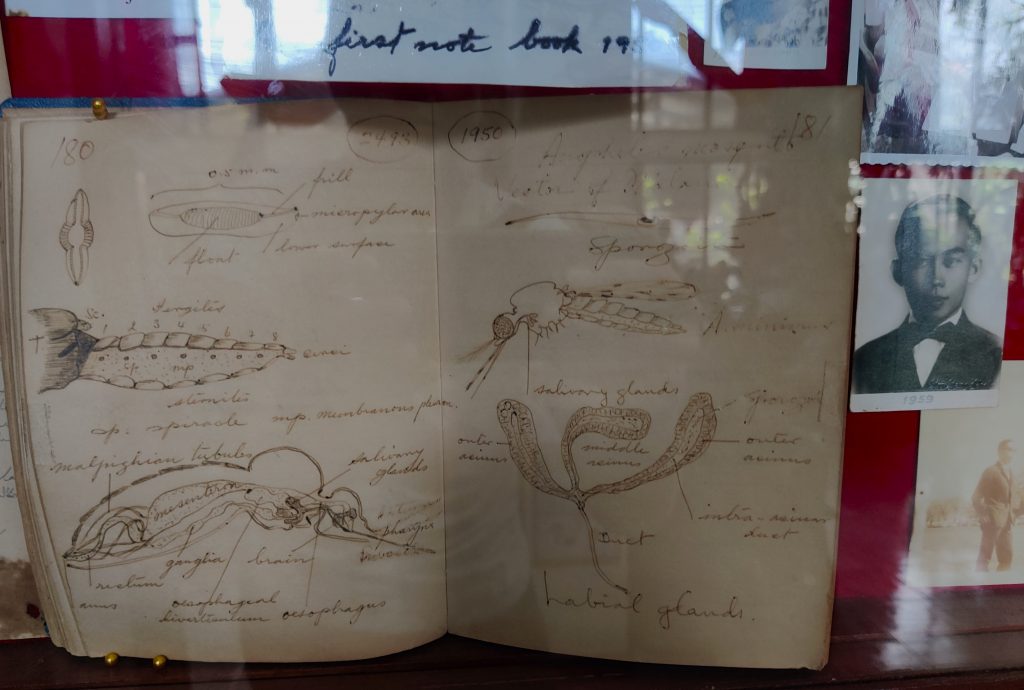 first note book 19
180
2493
0.5 m.m
frill
micropylar area
lower surface
float
Tergites
Sc.
1 2 3 4 5 6 7 8
T
cerci
sp. mp
sternites
sp. spiracle mp. membranous pleuron.
malpighian tubules
salivary
glands
mesenteron
pharynx
ganglia brain
rectum
anus
oesophageal
diverticulum oesophagus
1950
181
Anopheline mosquito
Vector of
A. minimus
salivary glands
outer
acinus
middle
acinus
outer
acinus
intra-acinus
duct
Duct
Labial glands.
1959